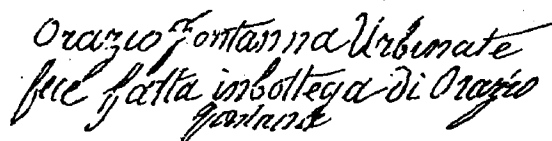 Orazio Fontanna Urbinate
fece fatta in bottega di Orazio